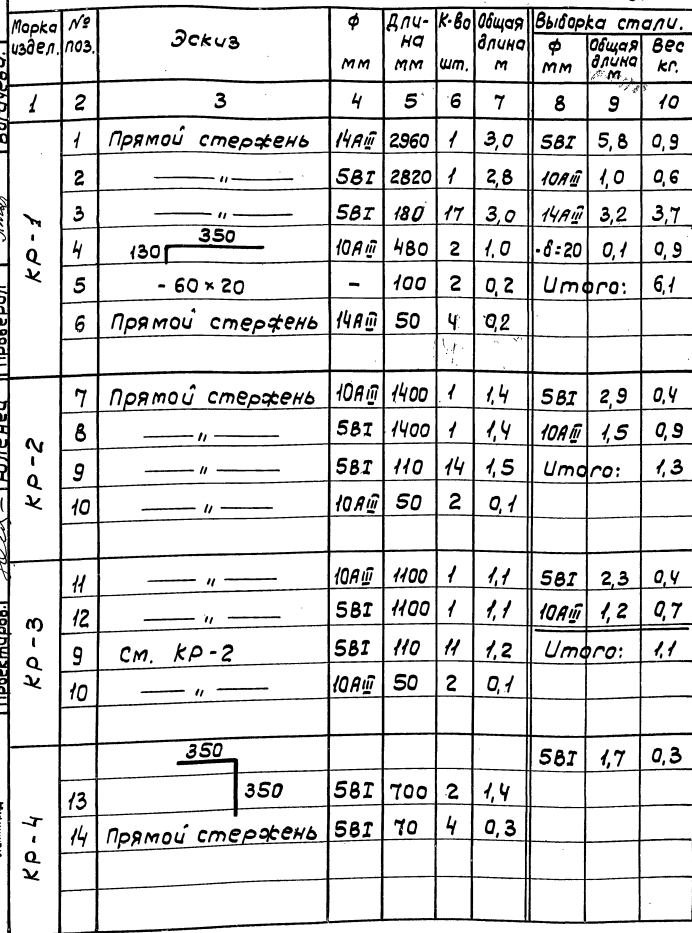 Марка издел. | № поз. | Эскиз | ф мм | Дли-на мм | К-во шт. | Общая длина м | Выборка стали.
ф мм | Общая длина м | Вес кг.
1 | 2 | 3 | 4 | 5 | 6 | 7 | 8 | 9 | 10
КР-1
1 | Прямой стержень | 14АIII | 2960 | 1 | 3,0 | 5ВI | 5,8 | 0,9
2 | —— " —— | 5ВI | 2820 | 1 | 2,8 | 10АIII | 1,0 | 0,6
3 | —— " —— | 5ВI | 180 | 17 | 3,0 | 14АIII | 3,2 | 3,7
4 | 130 350 | 10АIII | 480 | 2 | 1,0 | -δ=20 | 0,1 | 0,9
5 | - 60 × 20 | - | 100 | 2 | 0,2 | Итого: | 6,1
6 | Прямой стержень | 14АIII | 50 | 4 | 0,2
КР-2
7 | Прямой стержень | 10АIII | 1400 | 1 | 1,4 | 5ВI | 2,9 | 0,4
8 | —— " —— | 5ВI | 1400 | 1 | 1,4 | 10АIII | 1,5 | 0,9
9 | —— " —— | 5ВI | 110 | 14 | 1,5 | Итого: | 1,3
10 | —— " —— | 10АIII | 50 | 2 | 0,1
КР-3
11 | —— " —— | 10АIII | 1100 | 1 | 1,1 | 5ВI | 2,3 | 0,4
12 | —— " —— | 5ВI | 1100 | 1 | 1,1 | 10АIII | 1,2 | 0,7
9 | См. КР-2 | 5ВI | 110 | 11 | 1,2 | Итого: | 1,1
10 | —— " —— | 10АIII | 50 | 2 | 0,1
КР-4
350 | 5ВI | 1,7 | 0,3
13 | 350 | 5ВI | 700 | 2 | 1,4
14 | Прямой стержень | 5ВI | 70 | 4 | 0,3
Проверил